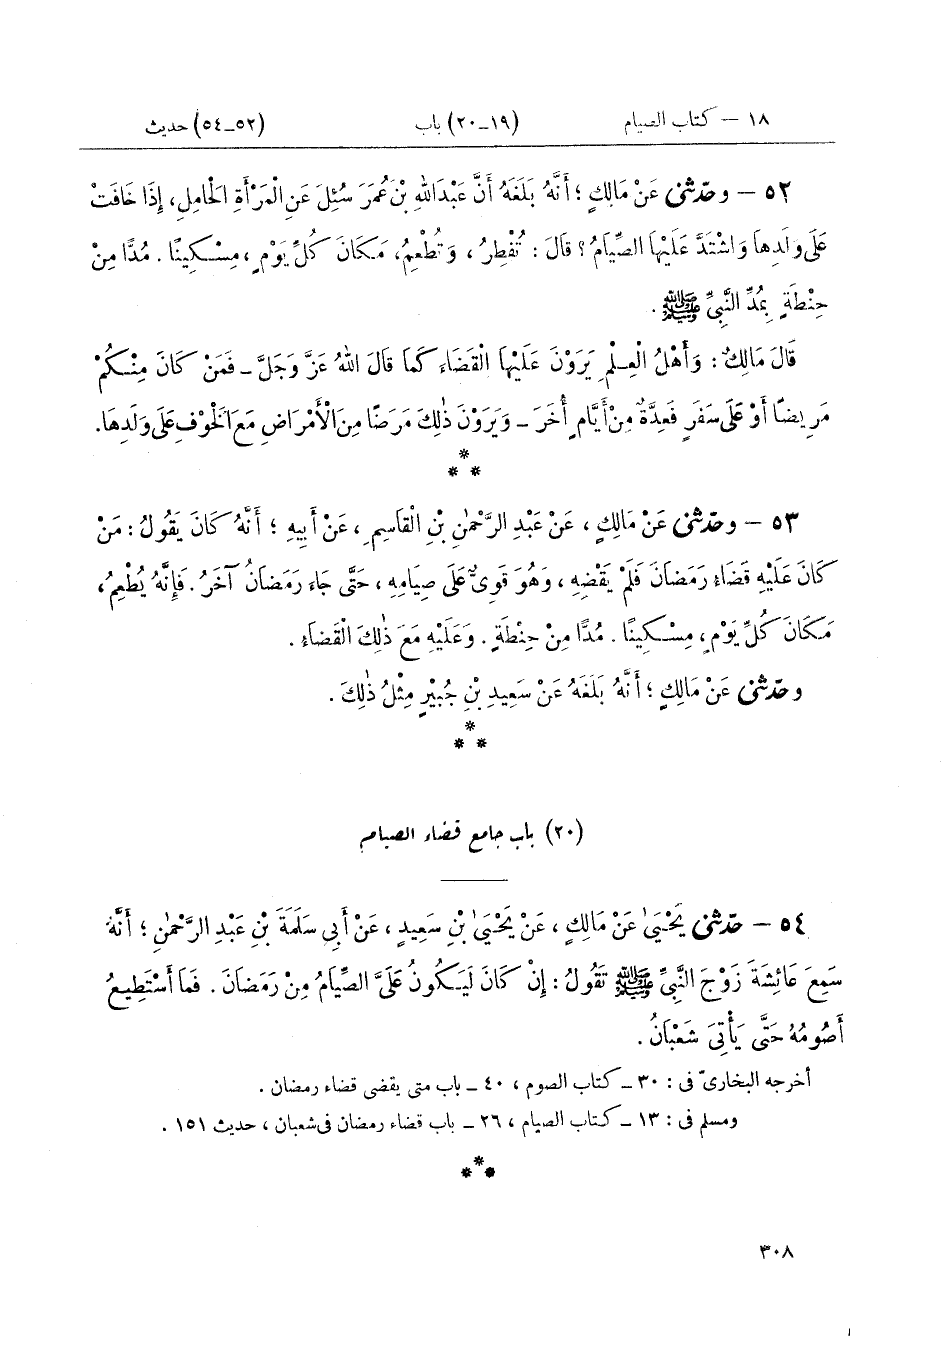 ١٨ – كتاب الصيام (١٩–٢٠) باب (٥٢–٥٤) حديث
٥٢ – وحدّثنى عَنْ مَالِكٍ؛ أَنَّهُ بَلَغَهُ أَنَّ عَبْدَ اللهِ بْنَ عُمَرَ سُئِلَ عَنِ الْمَرْأَةِ الْحَامِلِ، إِذَا خَافَتْ
عَلَى وَلَدِهَا وَاشْتَدَّ عَلَيْهَا الصِّيَامُ؟ قَالَ: تُفْطِرُ، وَتُطْعِمُ، مَكَانَ كُلِّ يَوْمٍ، مِسْكِينًا. مُدًّا مِنْ
حِنْطَةٍ بِمُدِّ النَّبِيِّ ﷺ.
قَالَ مَالِكٌ: وَأَهْلُ الْعِلْمِ يَرَوْنَ عَلَيْهَا الْقَضَاءَ كَمَا قَالَ اللهُ عَزَّ وَجَلَّ – فَمَنْ كَانَ مِنْكُمْ
مَرِيضًا أَوْ عَلَى سَفَرٍ فَعِدَّةٌ مِنْ أَيَّامٍ أُخَرَ – وَيَرَوْنَ ذٰلِكَ مَرَضًا مِنَ الْأَمْرَاضِ مَعَ الْخَوْفِ عَلَى وَلَدِهَا.
*
* *
٥٣ – وحدّثنى عَنْ مَالِكٍ، عَنْ عَبْدِ الرَّحْمٰنِ بْنِ الْقَاسِمِ، عَنْ أَبِيهِ؛ أَنَّهُ كَانَ يَقُولُ: مَنْ
كَانَ عَلَيْهِ قَضَاءُ رَمَضَانَ فَلَمْ يَقْضِهِ، وَهُوَ قَوِىٌّ عَلَى صِيَامِهِ، حَتَّى جَاءَ رَمَضَانُ آخَرُ. فَإِنَّهُ يُطْعِمُ،
مَكَانَ كُلِّ يَوْمٍ، مِسْكِينًا. مُدًّا مِنْ حِنْطَةٍ. وَعَلَيْهِ مَعَ ذٰلِكَ الْقَضَاءُ.
وحدّثنى عَنْ مَالِكٍ؛ أَنَّهُ بَلَغَهُ عَنْ سَعِيدِ بْنِ جُبَيْرٍ مِثْلُ ذٰلِكَ.
*
* *
(٢٠) باب جامع قضاء الصيام
٥٤ – حدّثنى يَحْيَىٰ عَنْ مَالِكٍ، عَنْ يَحْيَىٰ بْنِ سَعِيدٍ، عَنْ أَبِى سَلَمَةَ بْنِ عَبْدِ الرَّحْمٰنِ؛ أَنَّهُ
سَمِعَ عَائِشَةَ زَوْجَ النَّبِيِّ ﷺ تَقُولُ: إِنْ كَانَ لَيَكُونُ عَلَىَّ الصِّيَامُ مِنْ رَمَضَانَ. فَمَا أَسْتَطِيعُ
أَصُومُهُ حَتَّى يَأْتِىَ شَعْبَانُ.
أخرجه البخارىّ فى: ٣٠ – كتاب الصوم، ٤٠ – باب متى يقضى قضاء رمضان.
ومسلم فى: ١٣ – كتاب الصيام، ٢٦ – باب قضاء رمضان فى شعبان، حديث ١٥١.
*
* *
٣٠٨